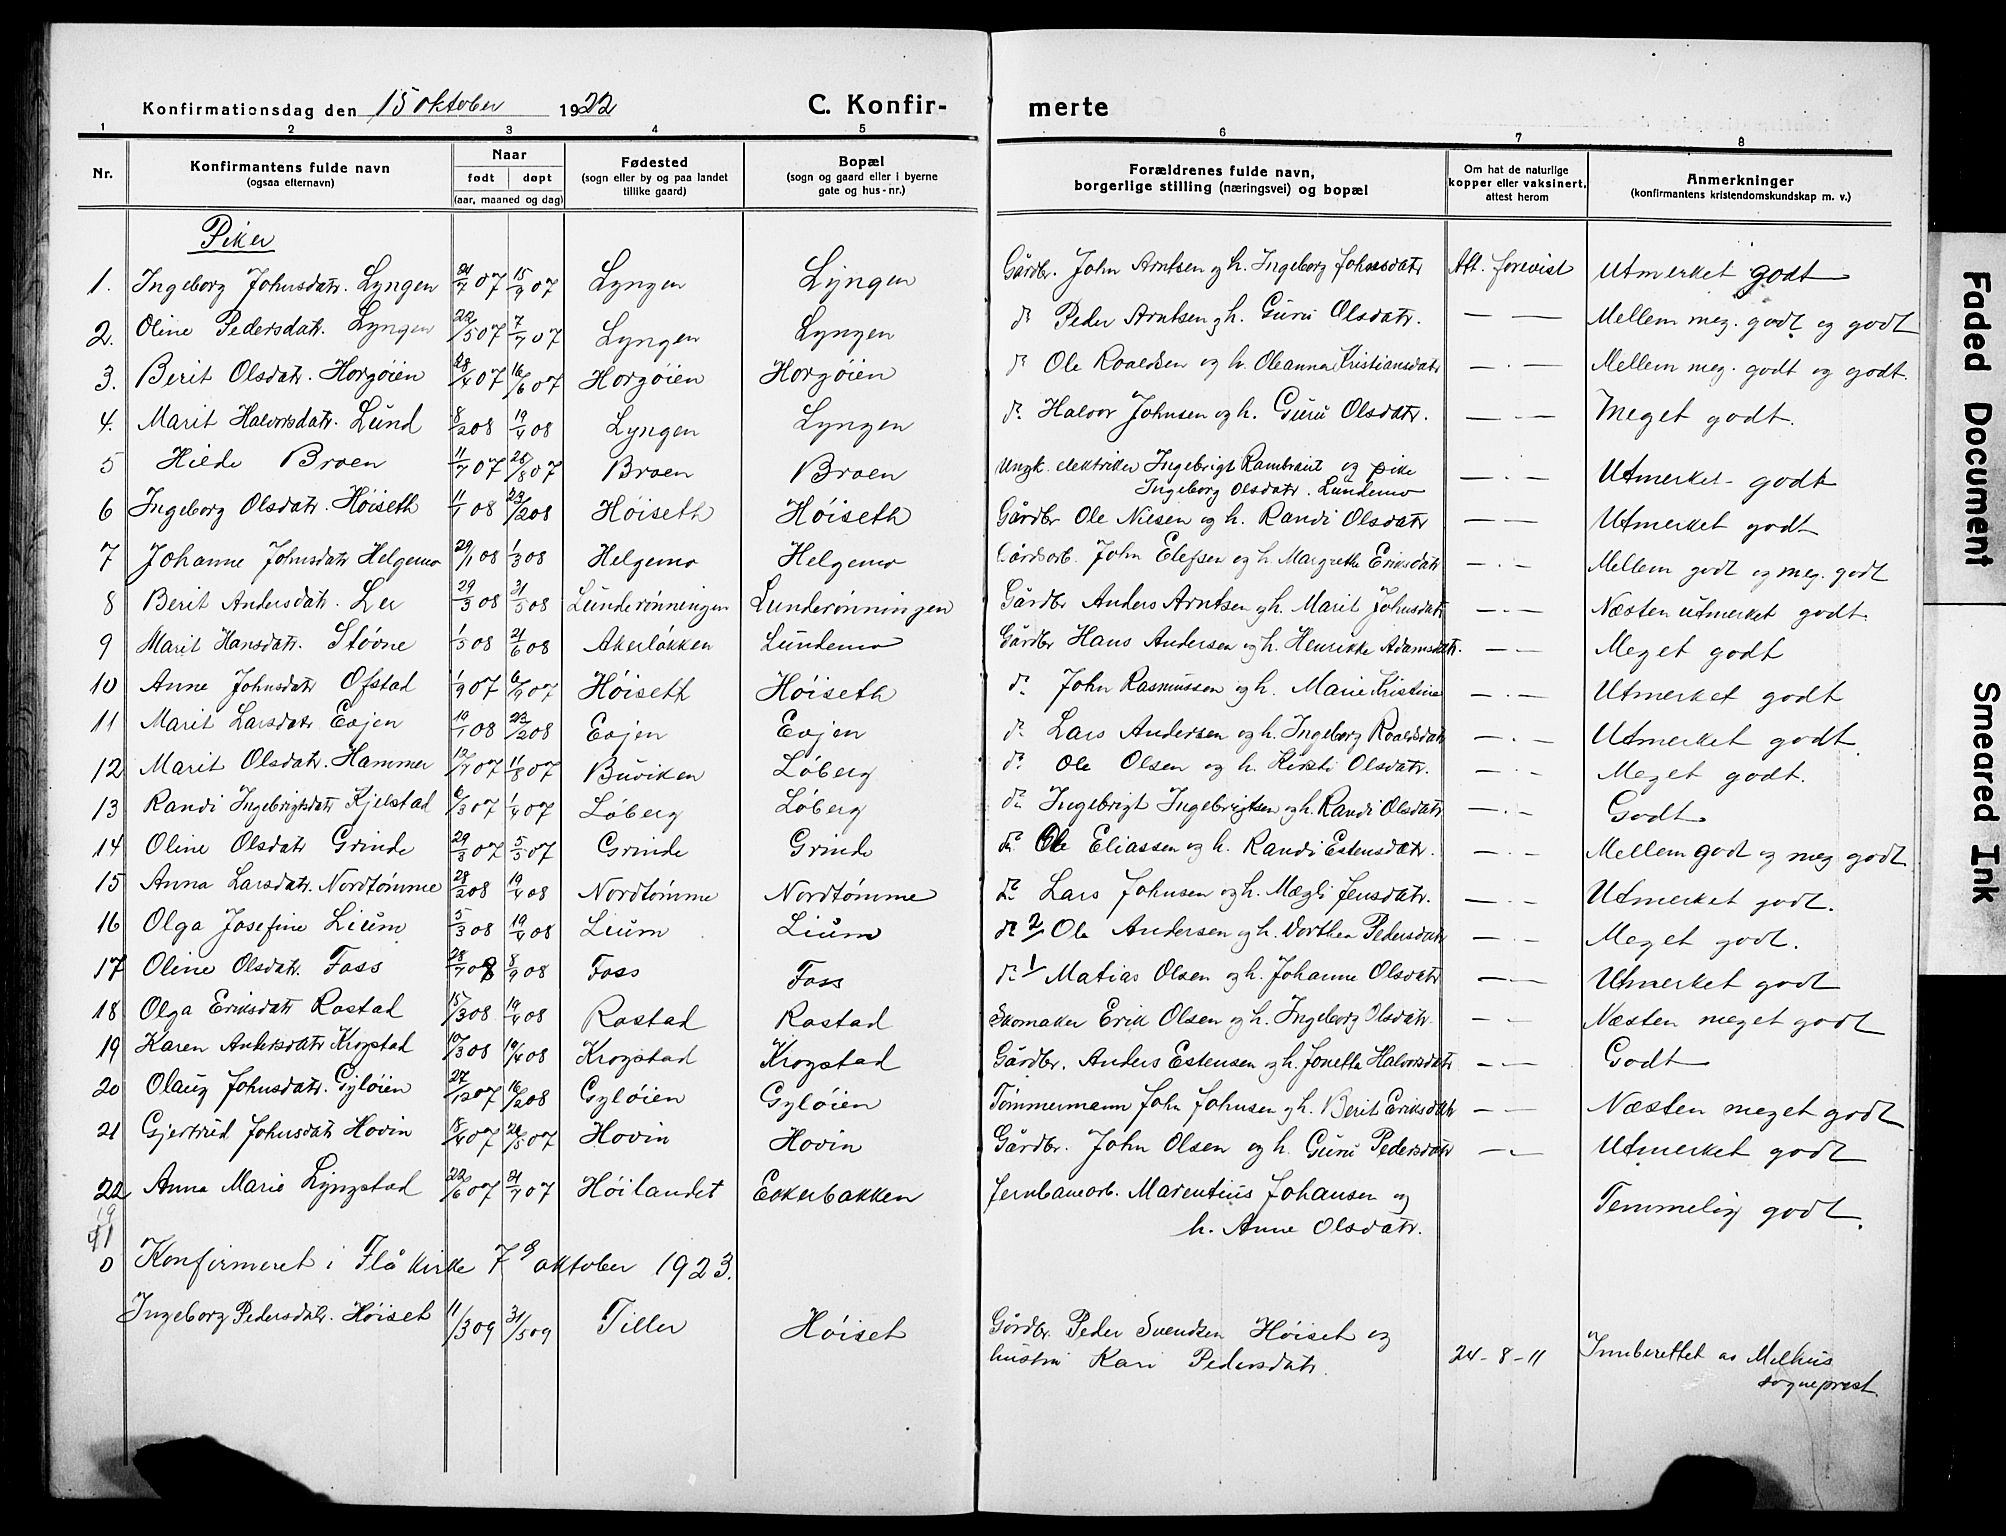 Konfirmationsdag den 15 oktober 1922 C. Konfir-merte
1 2 3 4 5 6 7 8
Nr. Konfirmantens fulde navn (ogsaa efternavn) Naar født døpt (aar, maaned og dag) Fødested (sogn eller by og paa landet tillike gaard) Bopæl (sogn og gaard eller i byerne gate og hus-nr.) Forældrenes fulde navn, borgerlige stilling (næringsvei) og bopæl Om hat de naturlige kopper eller vaksinert, attest herom Anmerkninger (konfirmantens kristendomskundskap m. v.)
Piker
1. Ingeborg Johnsdatr. Lyngen 21/7 07 15/9 07 Lyngen Lyngen Gårdbr. John Arntsen og h. Ingeborg Johnsdatr Att. forevist Utmerket godt
2. Oline Pedersdatr. Lyngen 22/5 07 7/7 07 Lyngen Lyngen do Peder Arntsen og h. Guru Olsdatr. — — Mellem meg. godt og godt
3. Berit Olsdatr. Horgøien 28/4 07 16/6 07 Horgøien Horgøien do Ole Roaldsen og h. Oleanna Kristiansdatr — . — Mellem meg. godt og godt.
4. Marit Halvorsdatr. Lund 8/2 08 19/4 08 Lyngen Lyngen do. Halvor Johnsen og h. Guru Olsdatr. — . — Meget godt.
5 Hilde Broen 11/7 07 25/8 07 Broen Broen Ungk. elektriker Ingebrigt Rambraut og pike — . — Utmerket godt
Ingeborg Olsdatr. Lundemo
6 Ingeborg Olsdatr. Høiseth 11/1 08 23/2 08 Høiseth Høiseth Gårdbr Ole Nilsen og h. Randi Olsdatr — — Utmerket godt
7 Johanne Johnsdatr Helgemo 29/1 08 1/3 08 Helgemo Helgemo Gårdsarb. John Elefsen og h. Margrethe Eriksdatr — . — Mellem godt og meg. godt
8 Berit Andersdatr. Ler 29/3 08 31/5 08 Lunderønningen Lunderønningen Gårdbr Anders Arntsen og h. Marit Johnsdatr — . — Næsten utmerket godt.
9 Marit Hansdatr. Støvne 1/5 08 21/6 08 Akerløkken Lundemo Gårdbr Hans Andersen og h. Henrikke Adamsdatr. — — Meget godt
10 Anne Johnsdatr Ofstad 1/9 07 6/9 07 Høiseth Høiseth do John Rasmussen og h. Marie Kristine — . — Utmerket godt
11 Marit Larsdatr Evjen 19/1 08 23/2 08 Evjen Evjen do Lars Andersen og h. Ingeborg Roaldsdatr — . — Utmerket godt
12 Marit Olsdatr. Hammer 12/7 07 11/8 07 Buviken Løberg do. Ole Olsen og h. Kirsti Olsdatr. — . — Meget godt.
13 Randi Ingebrigtsdatr Kjelstad 6/3 07 1/4 07 Løberg Løberg do Ingebrigt Ingebrigtsen og h. Randi Olsdatr — . — Godt
14 Oline Olsdatr Grinde 29/3 07 5/5 07 Grinde Grinde do. Ole Eliassen og h. Randi Estensdatr. — . — Mellem godt og meg godt
15 Anna Larsdatr. Nordtømme 28/2 08 19/4 08 Nordtømme Nordtømme do Lars Johnsen og h. Mægli Jensdatr. — . — Utmerket godt.
16 Olga Josefine Lium 5/3 08 19/4 08 Lium Lium do 2/ Ole Andersen og h. Dorthea Pedersdatr — . — Meget godt.
17 Oline Olsdatr. Foss 28/7 08 8/9 08 Foss Foss do 1/ Matias Olsen og h. Johanne Olsdatr — — Utmerket godt
18 Olga Eriksdatr Rostad 15/3 08 19/4 08 Rostad Rostad Skomaker Erik Olsen og h. Ingeborg Olsdatr. — — Næsten meget godt
19 Karen Andersdatr Krogstad 10/3 08 19/4 08 Krogstad Krogstad Gårdbr. Anders Estensen og h. Jonetta Halvorsdatr — — Godt
20 Olaug Johnsdatr. Gyløien 27/12 07 16/2 08 Gyløien Gyløien Tømmermann John Johnsen og h. Berit Eriksdatr — — Næsten meget godt
21 Gjertrud Johnsdatr Hovin 18/4 07 20/5 07 Hovin Hovin Gårdbr. John Olsen og h. Guru Pedersdatr — — Utmerket godt
22 Anna Marie Lyngstad 22/6 07 21/7 07 Høilandet Eckerbakken Jernbanearb. Marentius Johansen og Temmelig godt.
19 h. Anne Olsdatr.
41
0 Konfirmeret i Flå kirke 7de oktober 1923.
Ingeborg Pedersdatr. Høiset 11/3 09 31/5 09 Tiller Høiset Gårdbr. Peder Svendsen Høiset og 24-8-11 Innberettet av Melhus
hustru Kari Pedersdatr. sogneprest
Faded Document
Smeared Ink